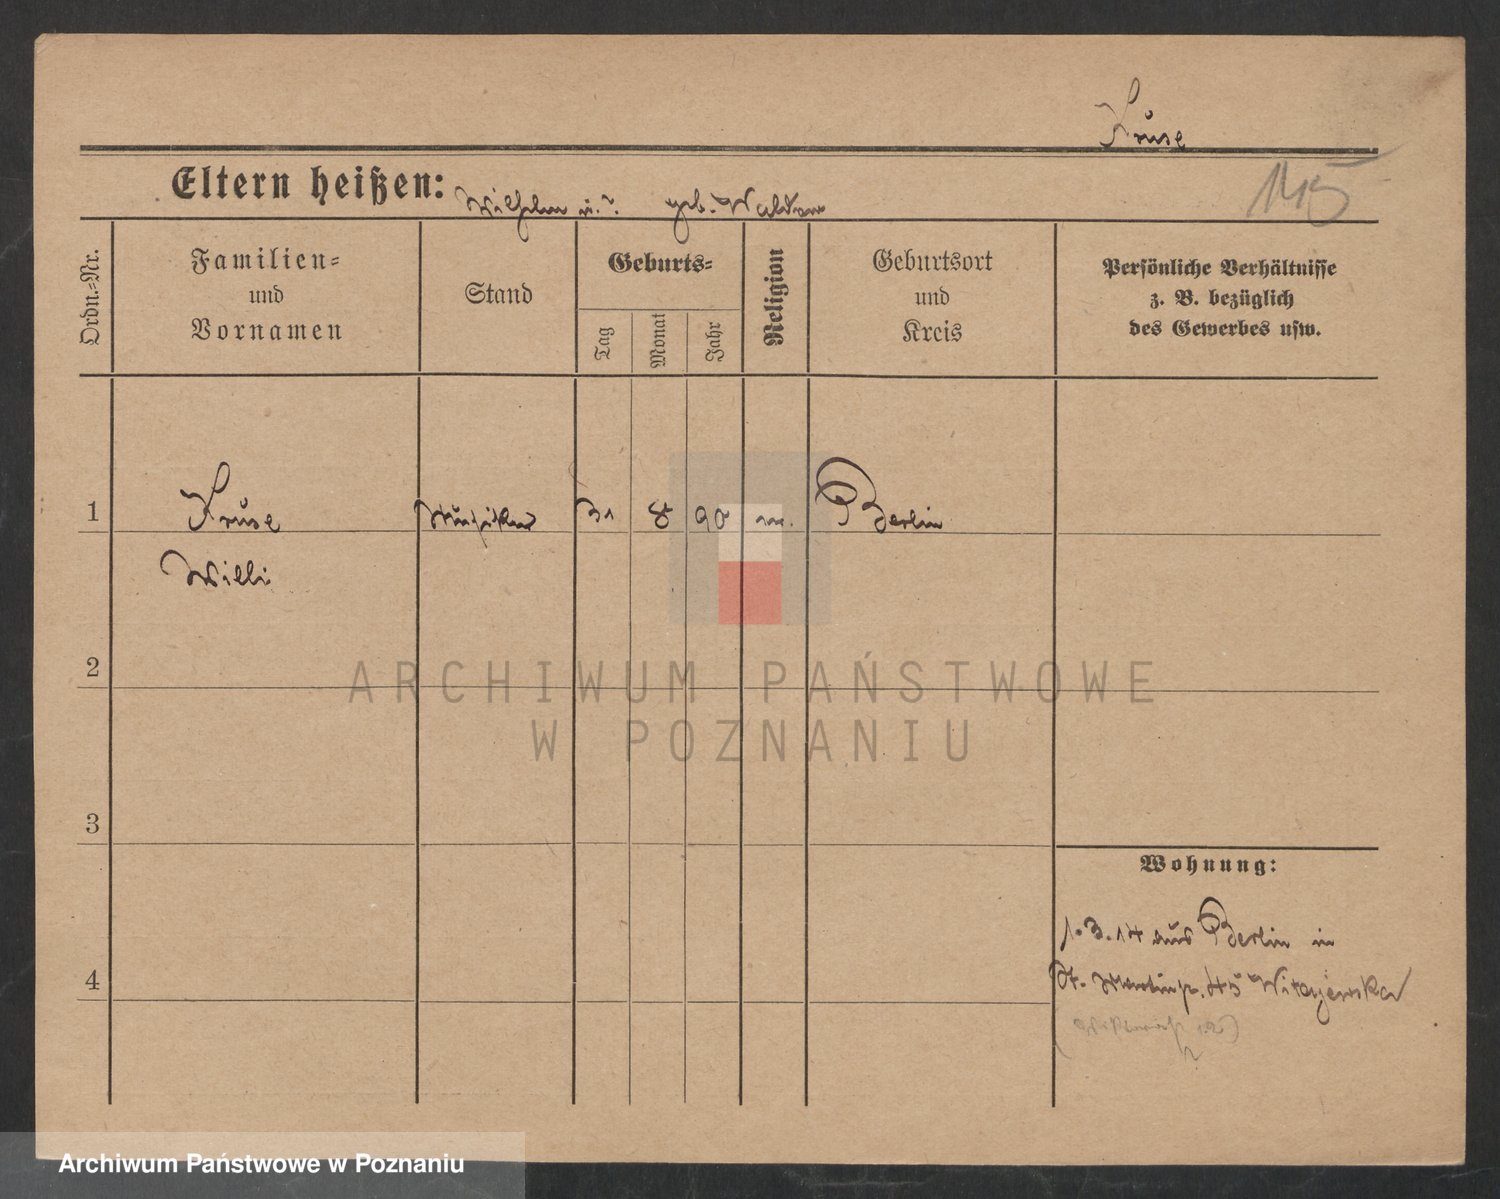 Kruse
115
Eltern heißen: Wilhelm u. ? geb. Waldow
Ordn.=Nr.
Familien=
und
Vornamen
Stand
Geburts=
Tag
Monat
Jahr
Religion
Geburtsort
und
Kreis
Persönliche Verhältnisse
z. B. bezüglich
des Gewerbes usw.
1 Kruse Musiker 31 8 90 Berlin
Willi
2
3
4
ARCHIWUM PAŃSTWOWE
W POZNANIU
Wohnung:
1.3.14 aus Berlin in
St. Martinstr. 45
Archiwum Państwowe w Poznaniu